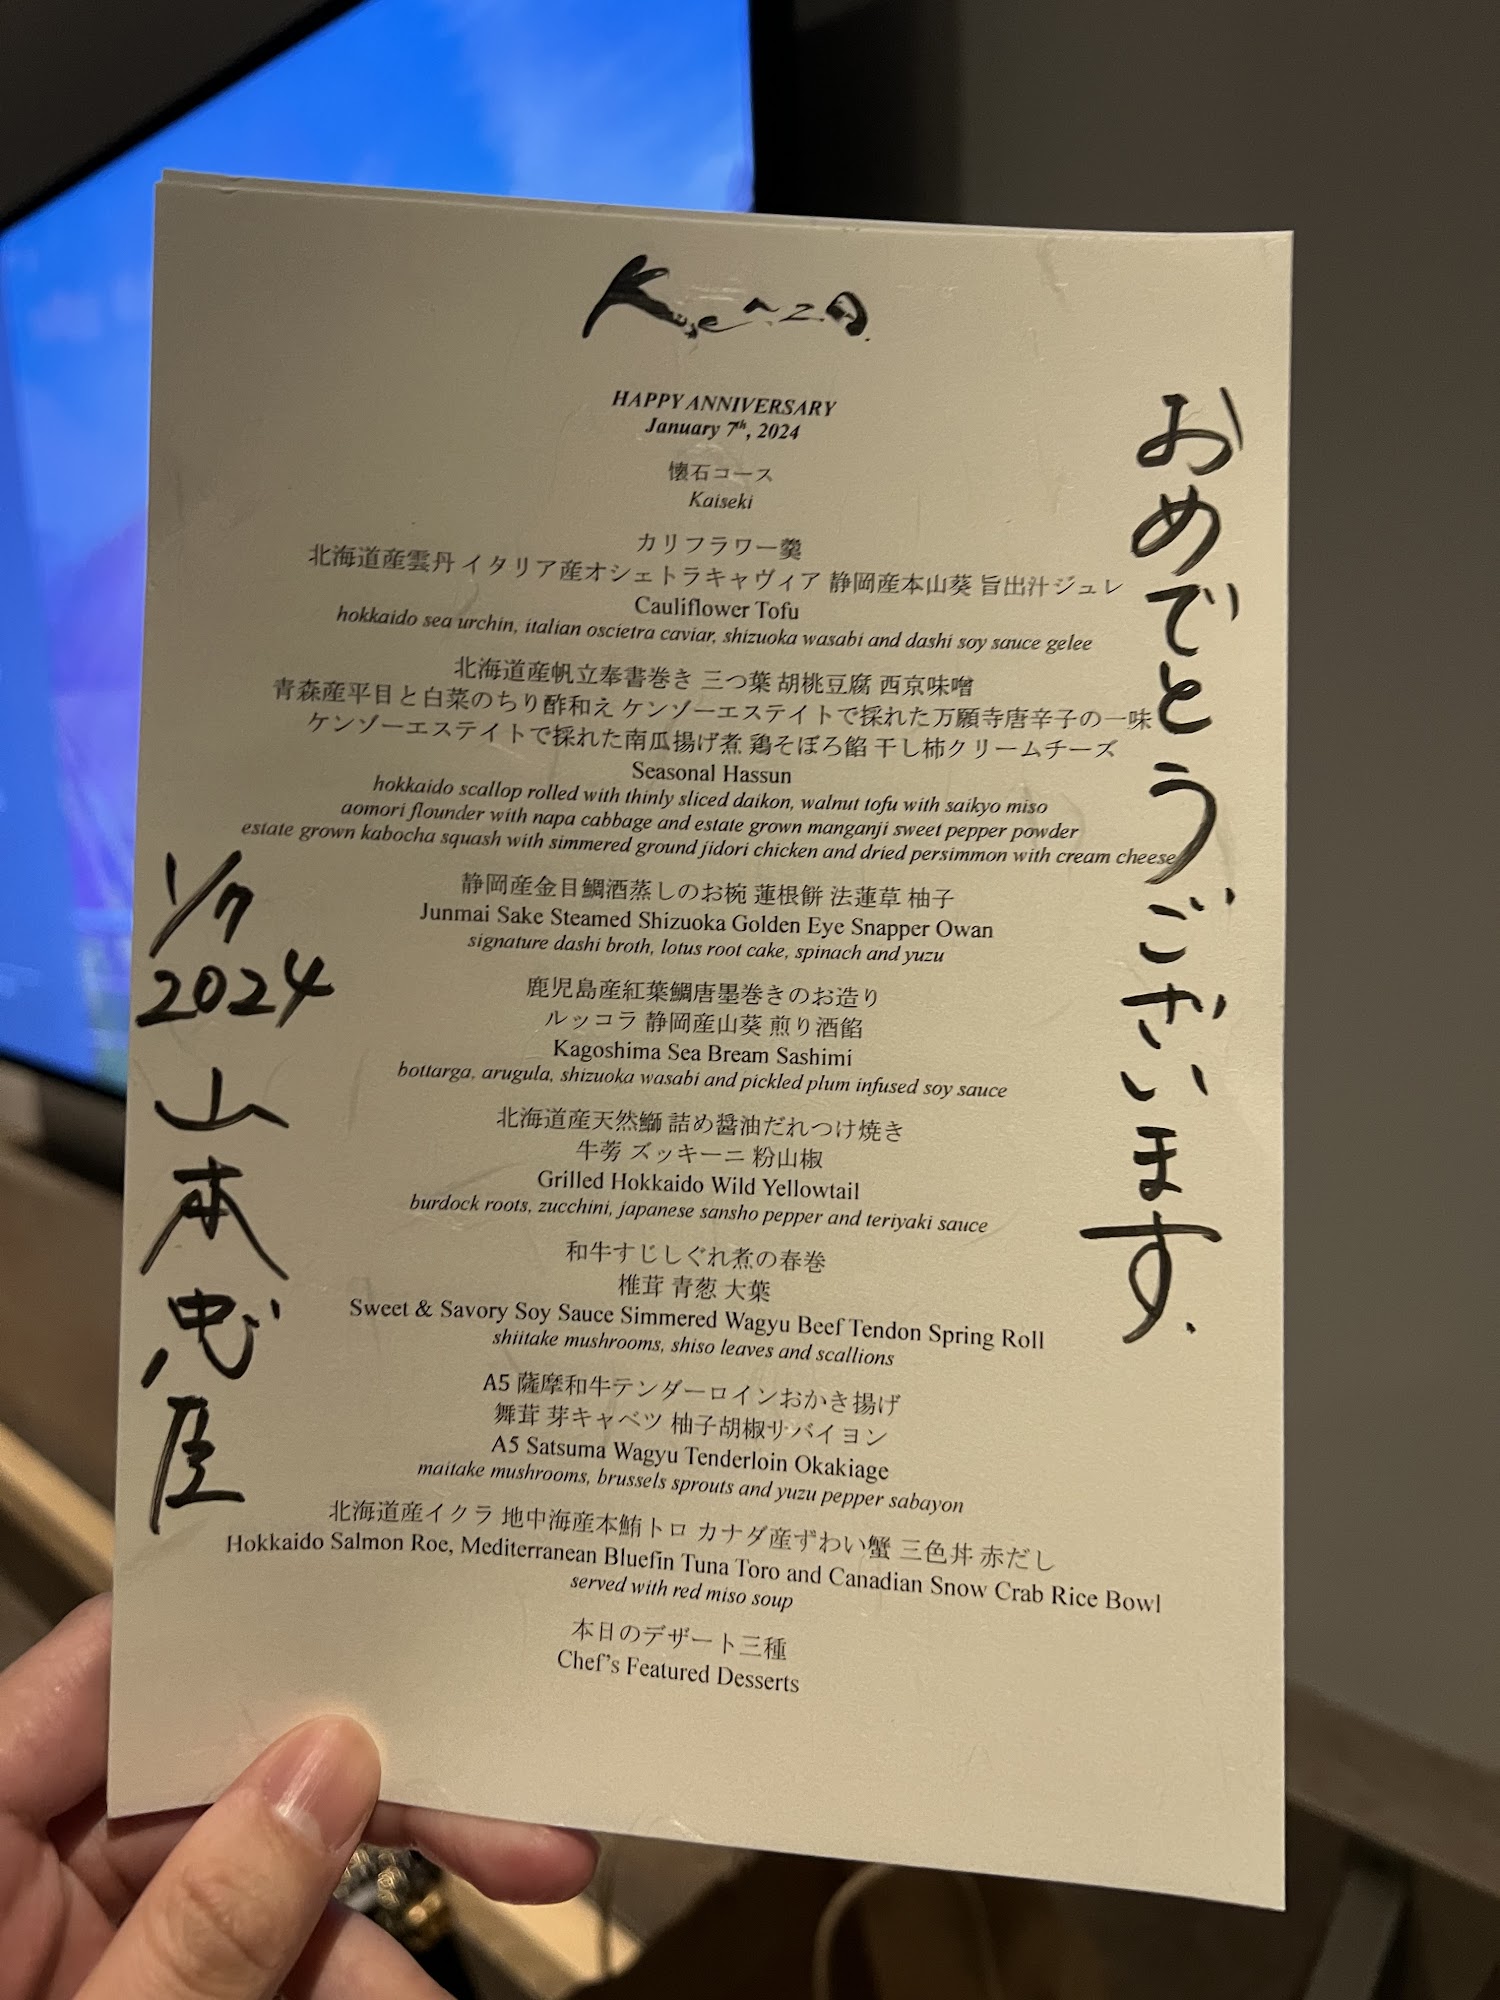 Kenzo
HAPPY ANNIVERSARY
January 7th, 2024
懐石コース
Kaiseki
カリフラワー羹
北海道産雲丹 イタリア産オシェトラキャヴィア 静岡産本山葵 旨出汁ジュレ
Cauliflower Tofu
hokkaido sea urchin, italian oscietra caviar, shizuoka wasabi and dashi soy sauce gelee
北海道産帆立奉書巻き 三つ葉 胡桃豆腐 西京味噌
青森産平目と白菜のちり酢和え ケンゾーエステイトで採れた万願寺唐辛子の一味
ケンゾーエステイトで採れた南瓜揚げ煮 鶏そぼろ餡 干し柿クリームチーズ
Seasonal Hassun
hokkaido scallop rolled with thinly sliced daikon, walnut tofu with saikyo miso
aomori flounder with napa cabbage and estate grown manganji sweet pepper powder
estate grown kabocha squash with simmered ground jidori chicken and dried persimmon with cream cheese
静岡産金目鯛酒蒸しのお椀 蓮根餅 法蓮草 柚子
Junmai Sake Steamed Shizuoka Golden Eye Snapper Owan
signature dashi broth, lotus root cake, spinach and yuzu
鹿児島産紅葉鯛唐墨巻きのお造り
ルッコラ 静岡産山葵 煎り酒餡
Kagoshima Sea Bream Sashimi
bottarga, arugula, shizuoka wasabi and pickled plum infused soy sauce
北海道産天然鰤 詰め醤油だれつけ焼き
牛蒡 ズッキーニ 粉山椒
Grilled Hokkaido Wild Yellowtail
burdock roots, zucchini, japanese sansho pepper and teriyaki sauce
和牛すじしぐれ煮の春巻
椎茸 青葱 大葉
Sweet & Savory Soy Sauce Simmered Wagyu Beef Tendon Spring Roll
shiitake mushrooms, shiso leaves and scallions
A5 薩摩和牛テンダーロインおかき揚げ
舞茸 芽キャベツ 柚子胡椒サバイヨン
A5 Satsuma Wagyu Tenderloin Okakiage
maitake mushrooms, brussels sprouts and yuzu pepper sabayon
北海道産イクラ 地中海産本鮪トロ カナダ産ずわい蟹 三色丼 赤だし
Hokkaido Salmon Roe, Mediterranean Bluefin Tuna Toro and Canadian Snow Crab Rice Bowl
served with red miso soup
本日のデザート三種
Chef's Featured Desserts
おめでとうございます.
1/7
2024
山本